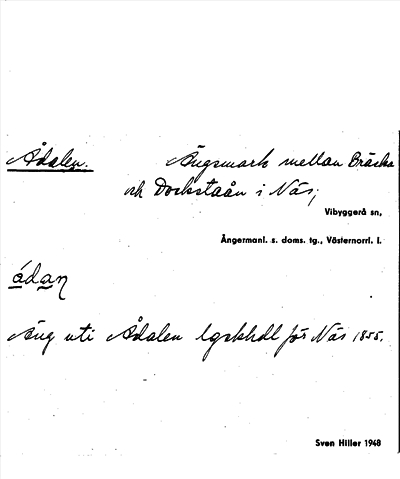 Ådalen. Ängsmark mellan Bräcka
och Dockstaån i Näs,
Vibyggerå sn,
Ångermanl. s. doms. tg., Västernorrl. l.
ádan
Äng uti Ådalen lgskhdl för Näs 1855.
Sven Hiller 1948